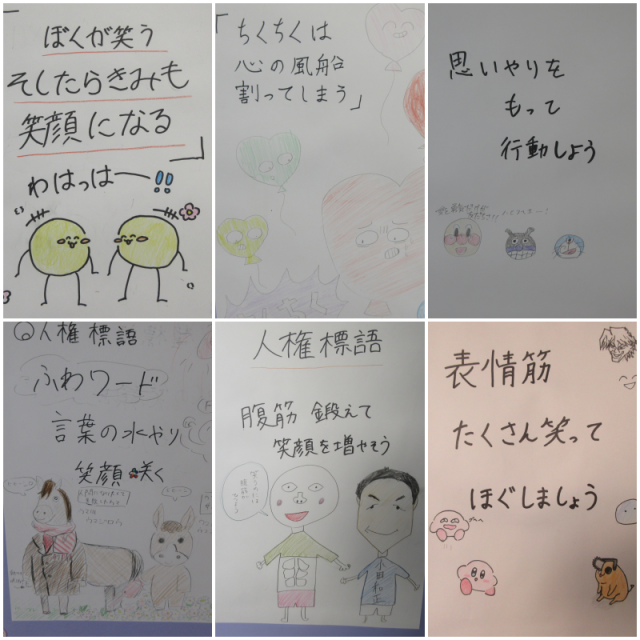 「
ぼくが笑う
そしたらきみも
笑顔になる
」
わはっはー!!
「ちくちくは
心の風船
割ってしまう」
思いやりを
もって
行動しよう
人権標語
ふわワード
言葉の水やり
笑顔咲く
人権標語
腹筋 鍛えて
笑顔を増やそう
小田和正
表情筋
たくさん笑って
ほぐしましょう